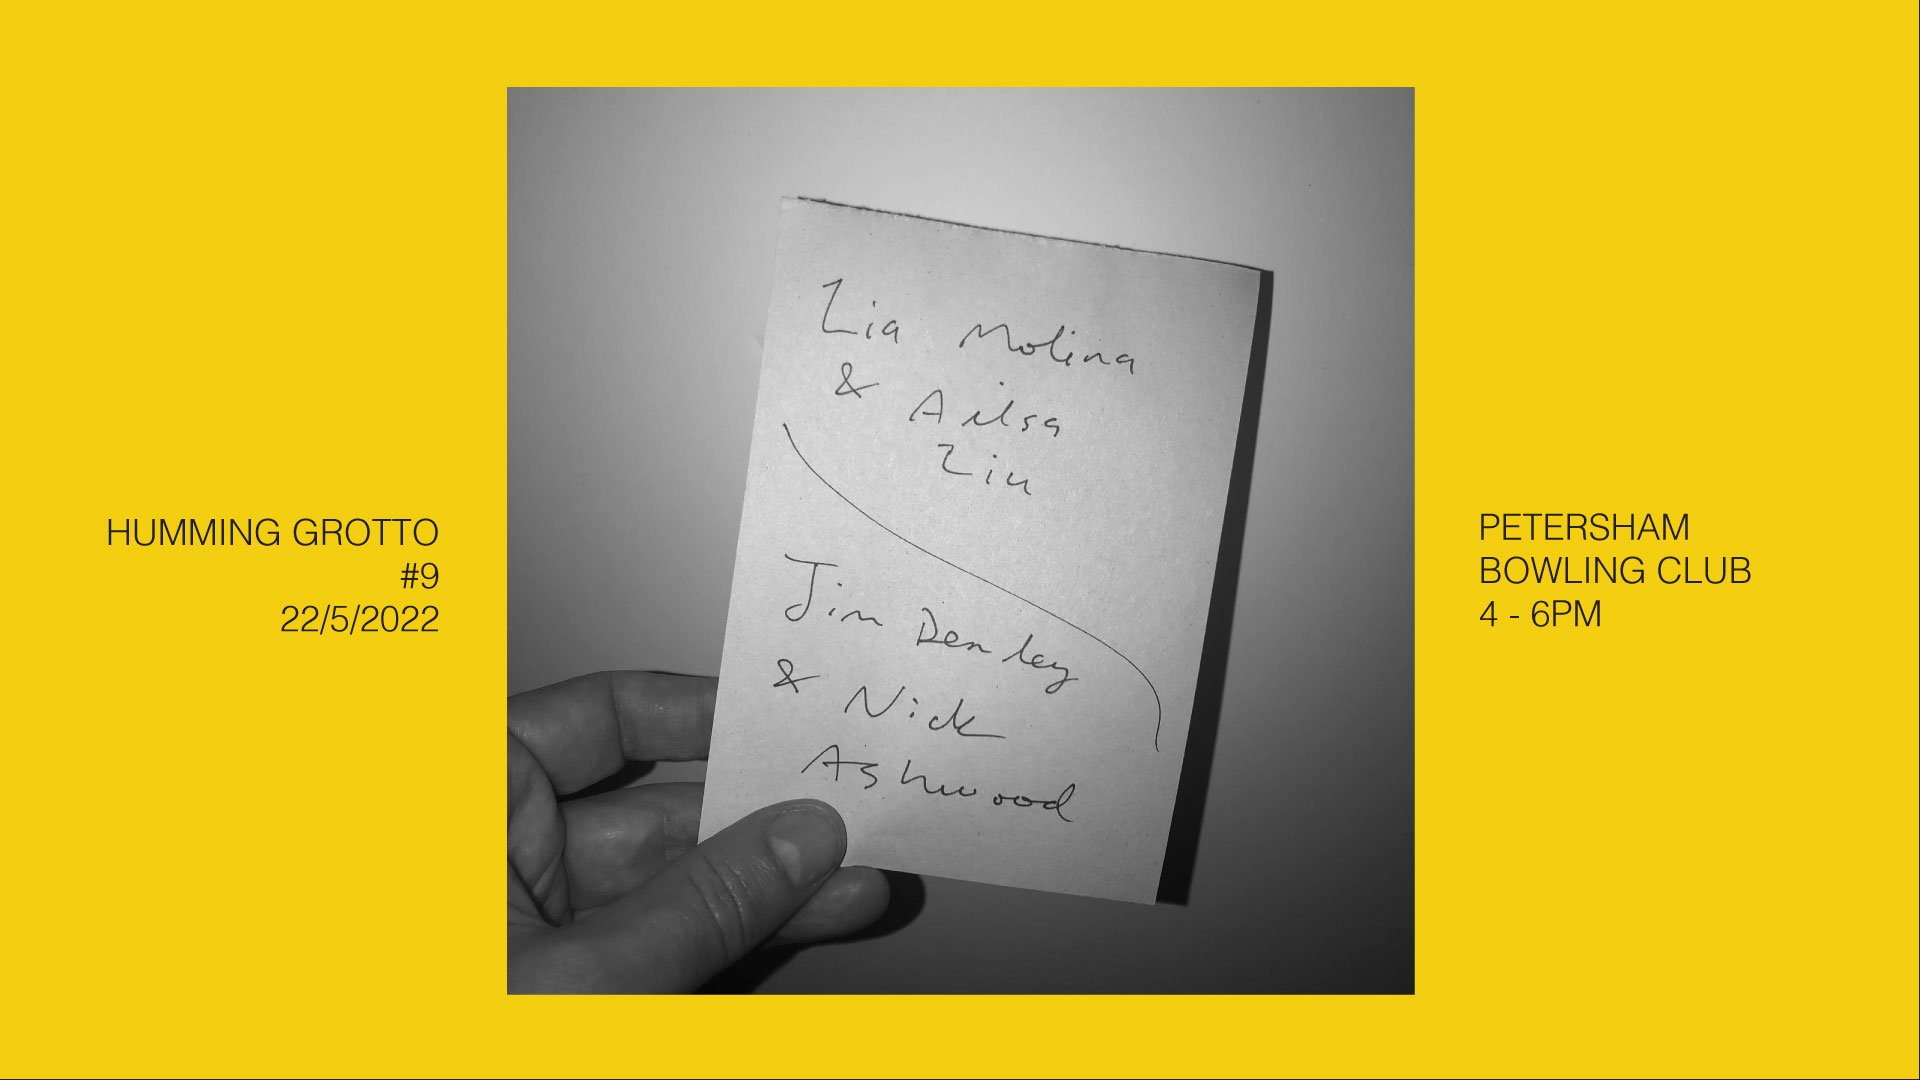 HUMMING GROTTO
#9
22/5/2022
Lia Molina
& Ailsa
Liu
Jim Denley
& Nick
Ashwood
PETERSHAM
BOWLING CLUB
4 - 6PM